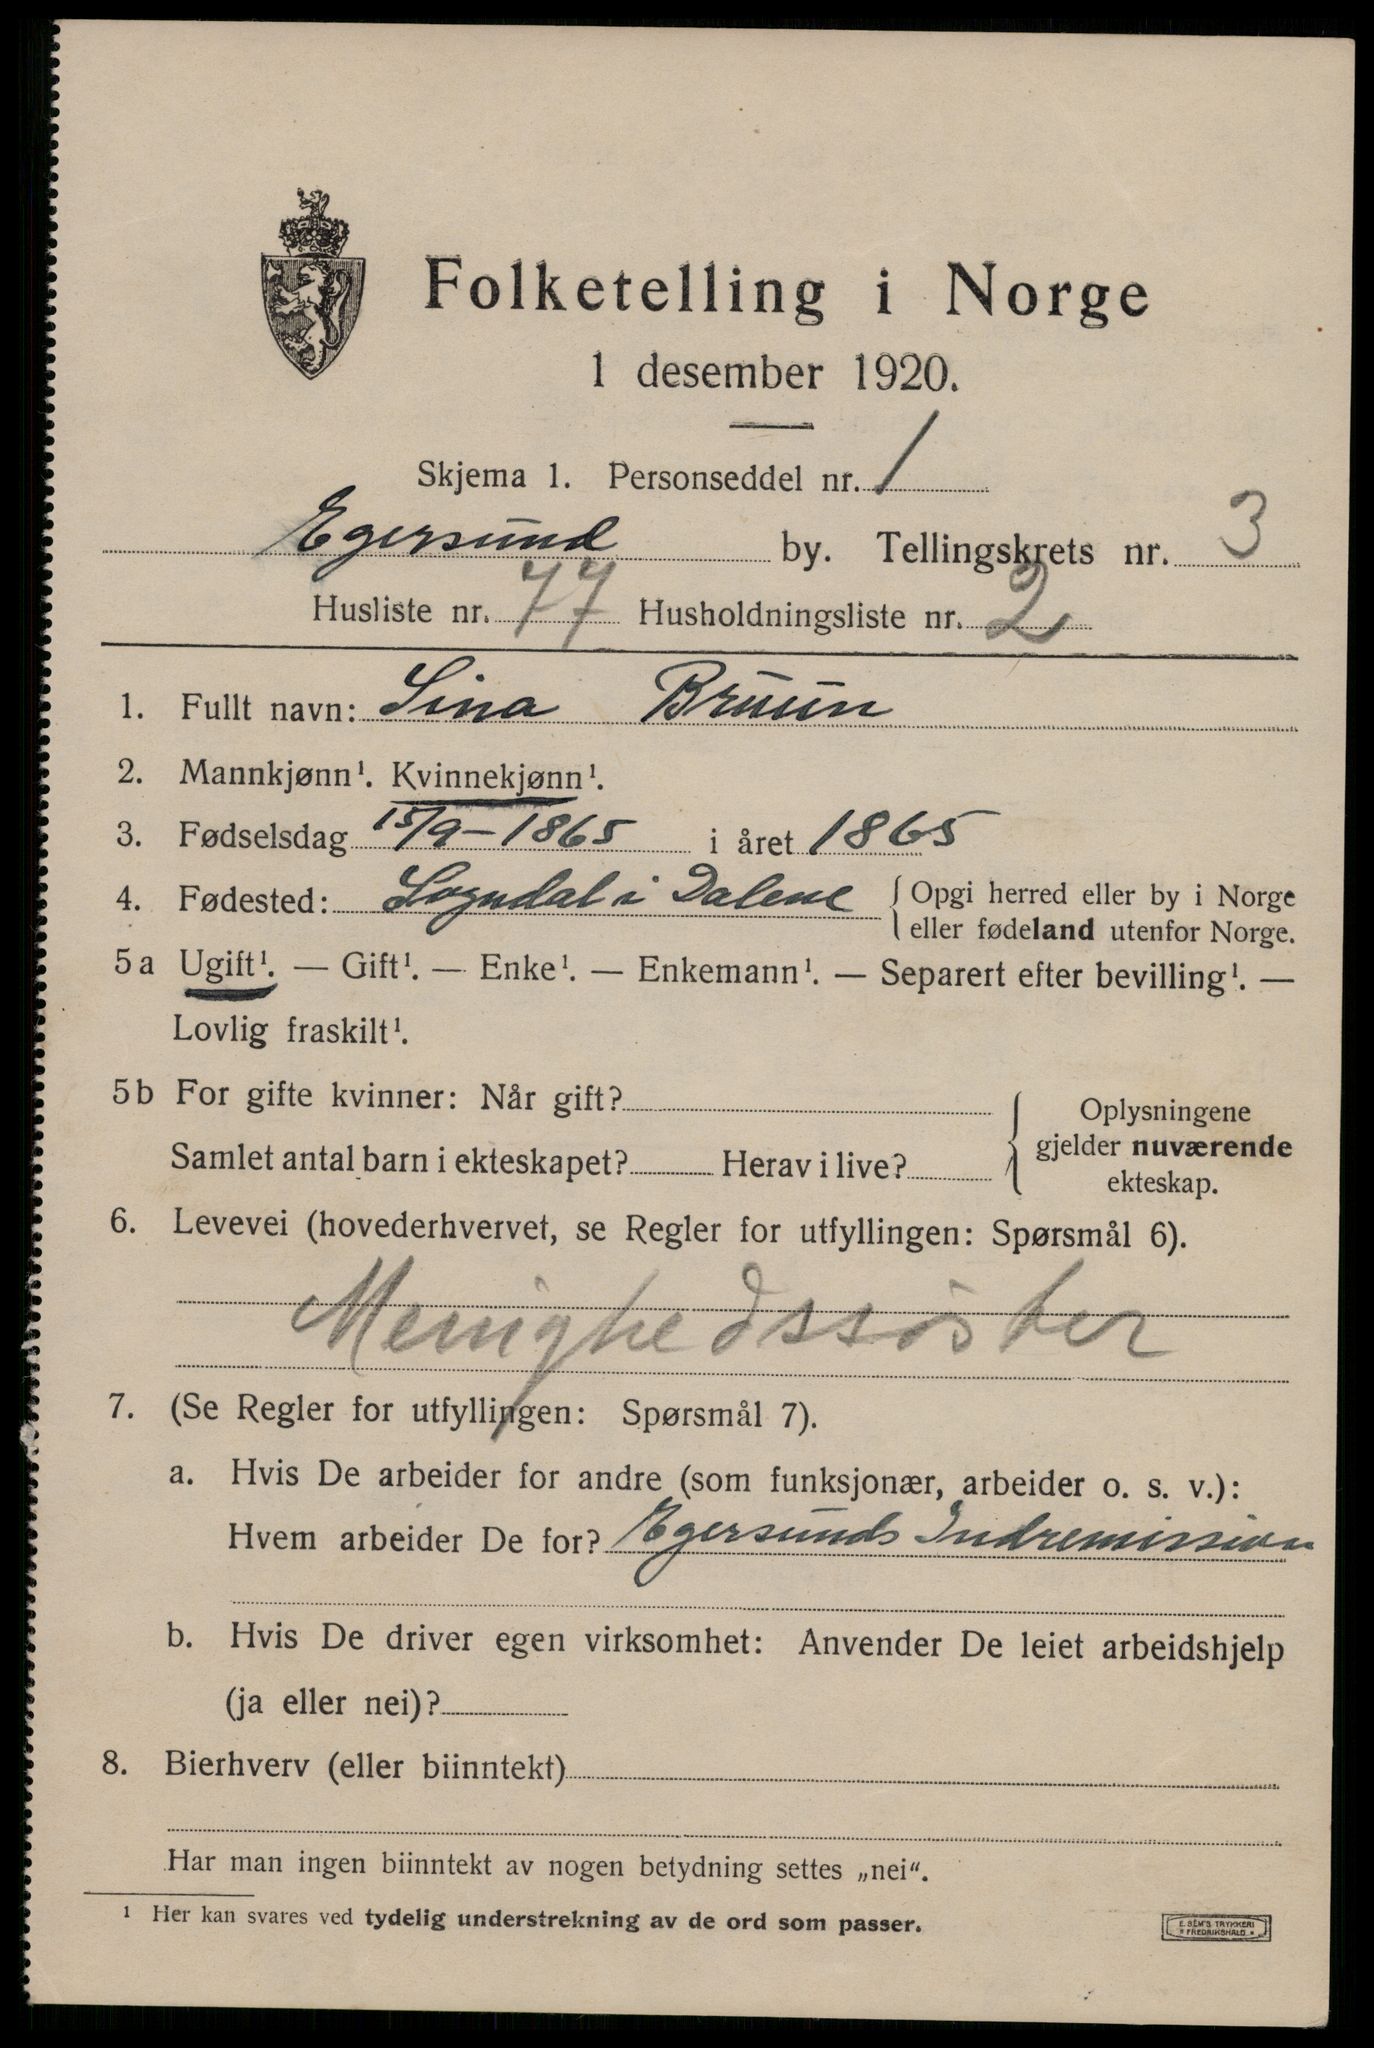 Folketelling i Norge
1 desember 1920.
Skjema 1. Personseddel nr. 1
Egersund by. Tellingskrets nr. 3
Husliste nr. 77 Husholdningsliste nr. 2
1. Fullt navn: Sina Bruun
2. Mannkjønn¹. Kvinnekjønn¹.
3. Fødselsdag 15/9-1865 i året 1865
4. Fødested: Sogndal i Dalene { Opgi herred eller by i Norge
eller fødeland utenfor Norge.
5a Ugift¹. — Gift¹. — Enke¹. — Enkemann¹. — Separert efter bevilling¹. —
Lovlig fraskilt¹.
5b For gifte kvinner: Når gift?
Samlet antal barn i ekteskapet? Herav i live?
Oplysningene
gjelder nuværende
ekteskap.
6. Levevei (hovederhvervet, se Regler for utfyllingen: Spørsmål 6).
Menighedssøster
7. (Se Regler for utfyllingen: Spørsmål 7).
a. Hvis De arbeider for andre (som funksjonær, arbeider o. s. v.):
Hvem arbeider De for? Egersunds Indremission
b. Hvis De driver egen virksomhet: Anvender De leiet arbeidshjelp
(ja eller nei)?
8. Bierhverv (eller biinntekt)
Har man ingen biinntekt av nogen betydning settes „nei“.
¹ Her kan svares ved tydelig understrekning av de ord som passer.
E. SEM'S TRYKKERI
* FREDRIKSHALD *